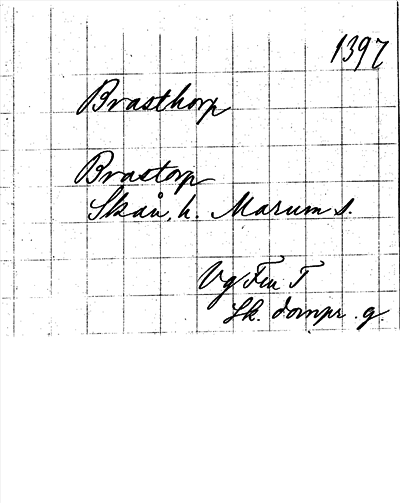 1397
Brasthorp
Brastorp
Skån. h. Marum s.
Vg Fru T
Sk. dompr. g.